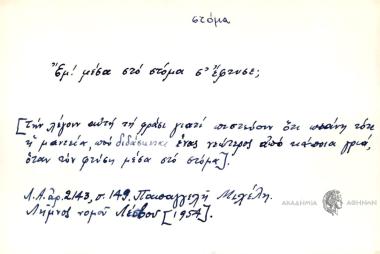 στόμα
Ἔμ! μέσα στό στόμα σ' ἔφτυσε;
[Τήν λέγουν αὐτή τή φράσι γιατί πιστεύουν ὅτι πιάνη τότε
ἡ μαντεία, πού διδάσκεται ἕνας νεώτερος ἀπό κάποια γριά,
ὅταν τόν φτύση μέσα στό στόμα].
Λ.Α. ἀρ. 2143, σ. 149, Παπαγγελῆ Μιχέλη.
Λῆμνος νομοῦ Λέσβου [1954].
ΑΚΑΔΗΜΙΑ ΑΘΗΝΩΝ